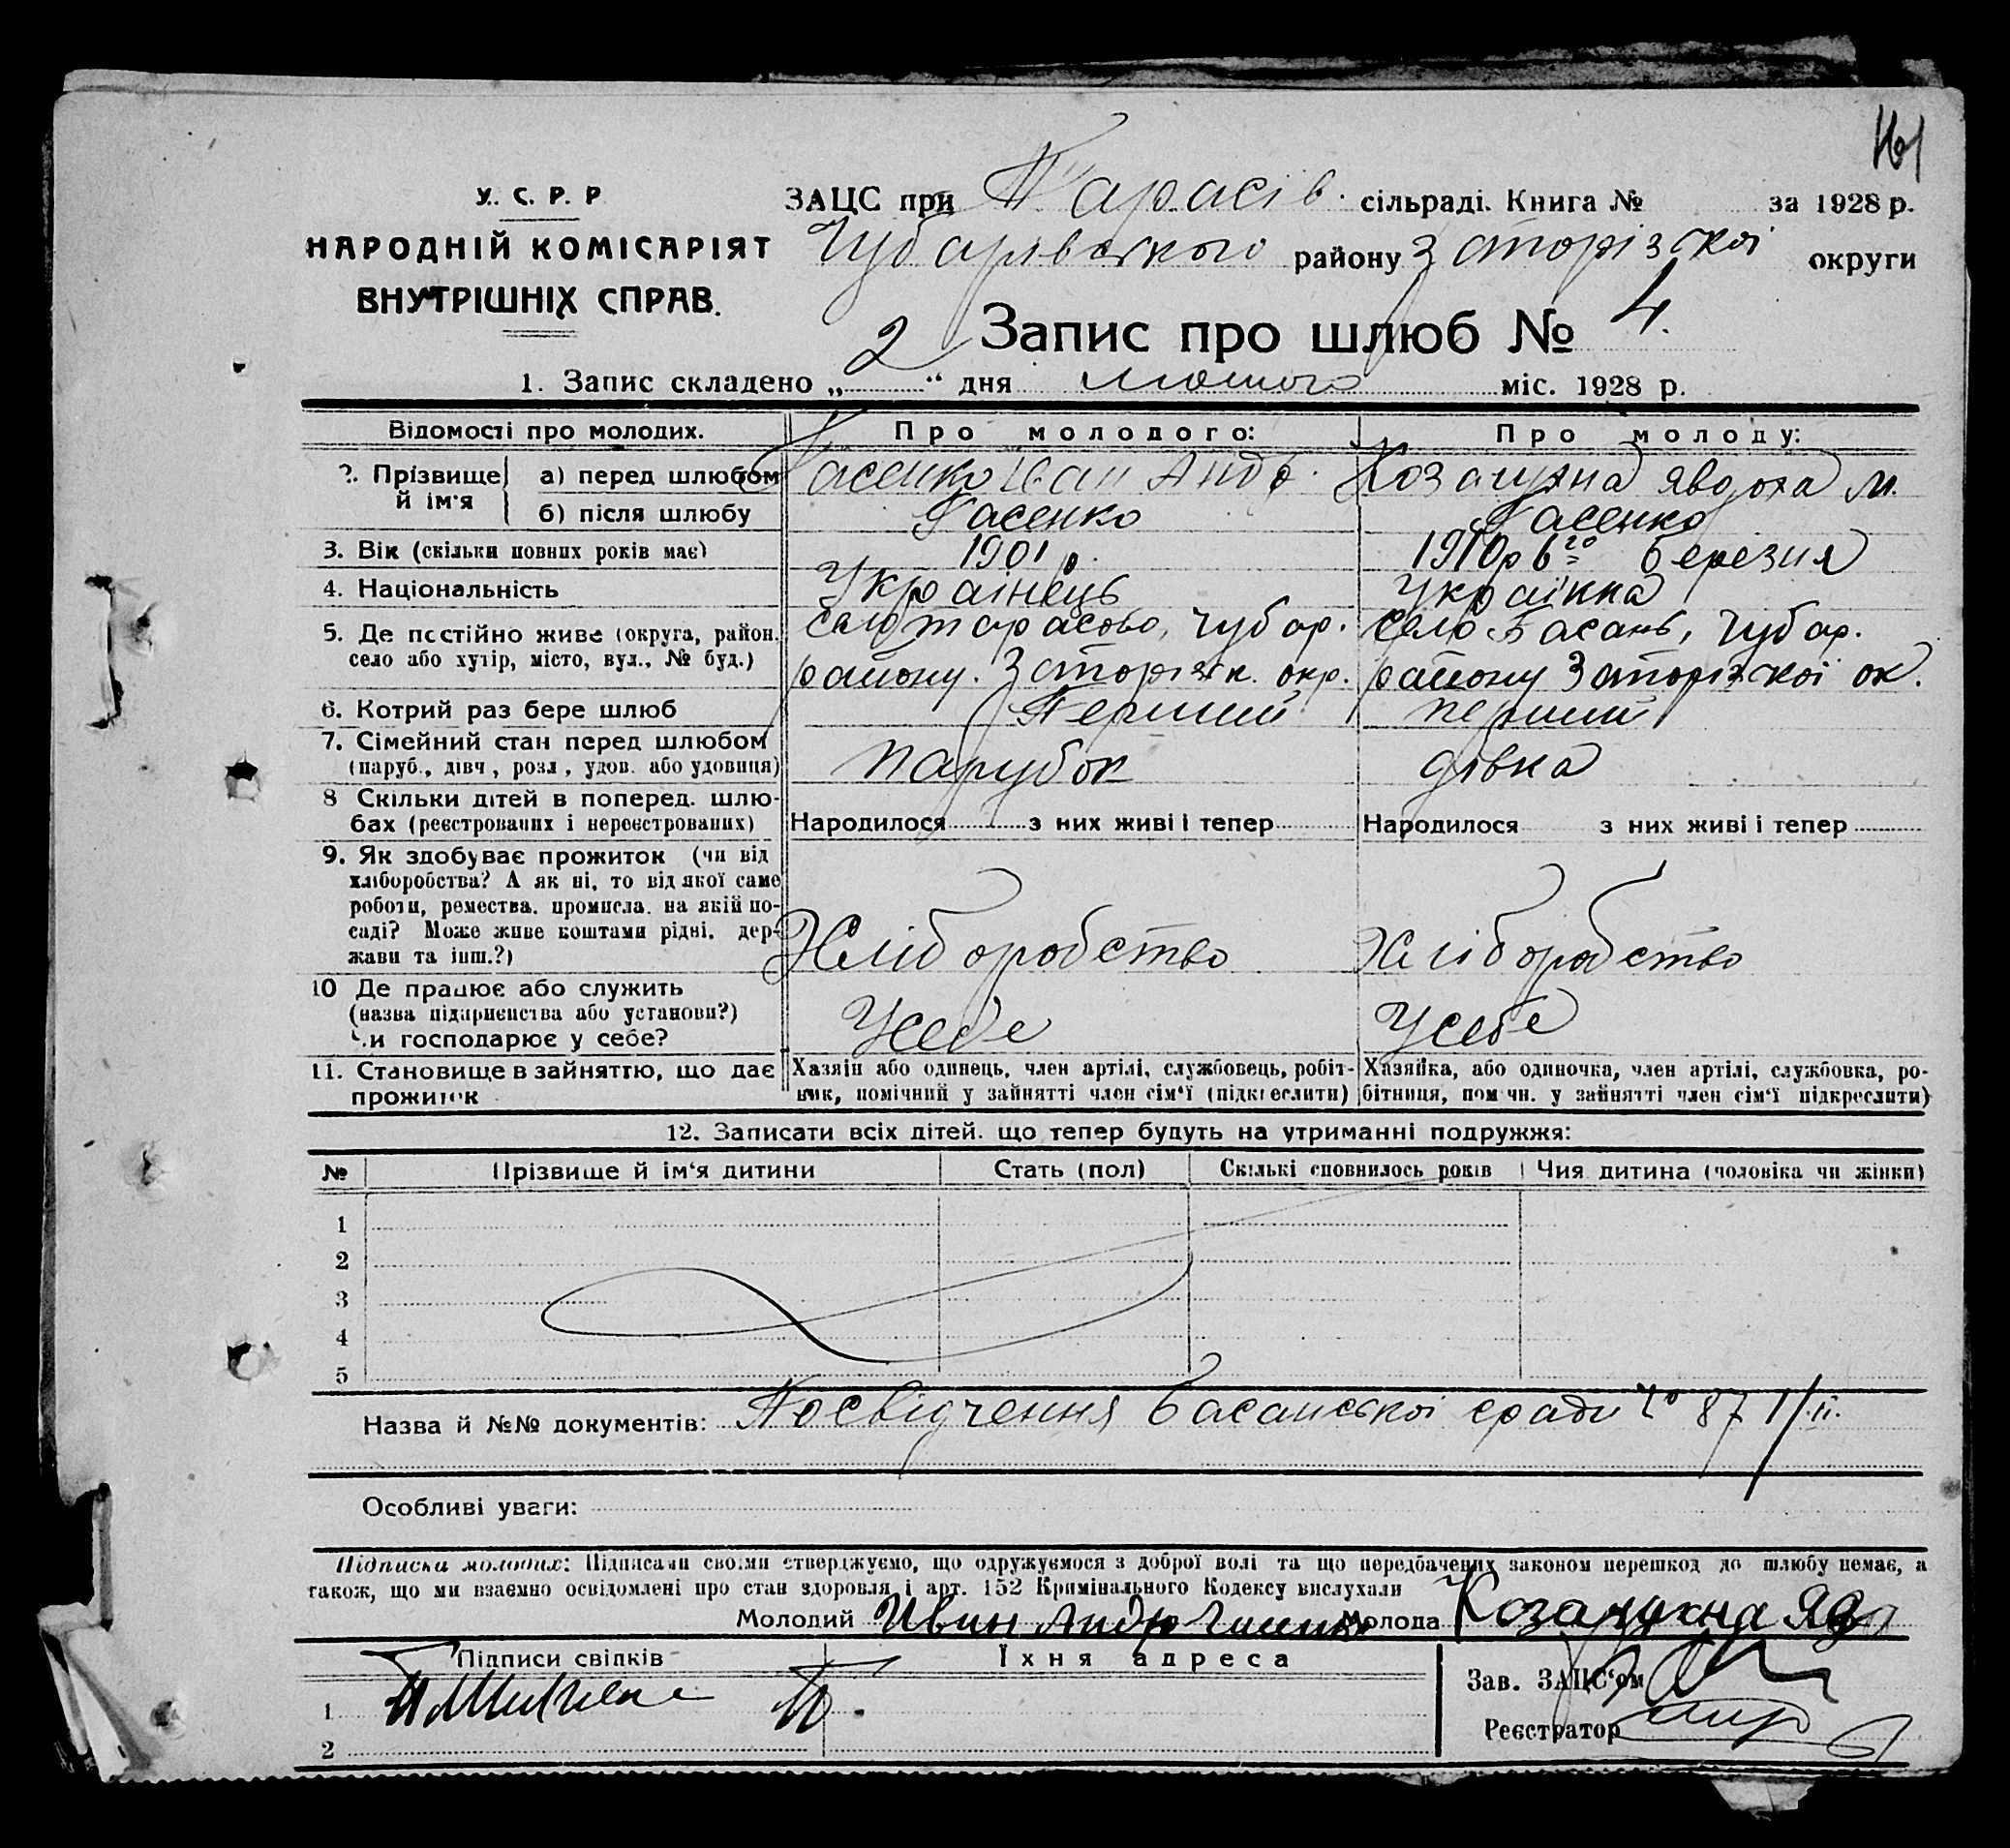 У. С. Р. Р
НАРОДНІЙ КОМІСАРІЯТ
ВНУТРІШНІХ СПРАВ.
161
ЗАЦС при Тарасів. сільраді. Книга № за 1928 р.
Чубарівського району Запорізької округи
Запис про шлюб № 4.
1. Запис складено „2“ дня лютого міс. 1928 р.
Відомості про молодих. Про молодого: Про молоду:
2. Прізвище й ім'я а) перед шлюбом Гасенко Іван Андр. Явдоха М.
б) після шлюбу Гасенко Гасенко
3. Вік (скільки повних років має) 1901 р. 1910 р 6го березня
4. Національність Українець Українка
5. Де постійно живе (округа, район, село Тарасово, Чубар. село Басань, Чубар.
село або хутір, місто, вул., № буд.) району. Запоріжк. окр. району Запоріжкої ок.
6. Котрий раз бере шлюб Перший перший
7. Сімейний стан перед шлюбом
(паруб., дівч., розл., удов. або удовиця) парубок дівка
8 Скільки дітей в поперед. шлю-
бах (реєстрованих і нереєстрованих) Народилося з них живі і тепер Народилося з них живі і тепер
9. Як здобуває прожиток (чи від
хліборобства? А як ні, то від якої саме
роботи, ремества, промисла, на якій по-
саді? Може живе коштами рідні, дер-
жави та інш.?) Хліборобство Хліборобство
10 Де працює або служить
(назва підприємства або установи?)
Чи господарює у себе? У себе У себе
11. Становище в зайняттю, що дає Хазяїн або одинець, член артілі, службовець, робіт- Хазяйка, або одиночка, член артілі, службовка, ро-
прожиток ник, помічний у зайнятті член сім'ї (підкреслити) бітниця, помічн. у зайнятті член сім'ї підкреслити)
12. Записати всіх дітей, що тепер будуть на утриманні подружжя:
№ Прізвище й ім'я дитини Стать (пол) Скількі сповнилось років Чия дитина (чоловіка чи жінки)
1
2
3
4
5
Назва й №№ документів: Посвідчення Басанської сради № 87 1/II.
Особливі уваги:
Підписка молодих: Підписами своіми стверджуємо, що одружуємося з доброї волі та що передбачених законом перешкод до шлюбу немає, а
також, що ми взаємно освідомлені про стан здоровля і арт. 152 Кримінального Кодексу вислухали
Молодий Иван Молода
Підписи свідків Їхня адреса
Зав. ЗАЦС'ом
1
Реєстратор
2